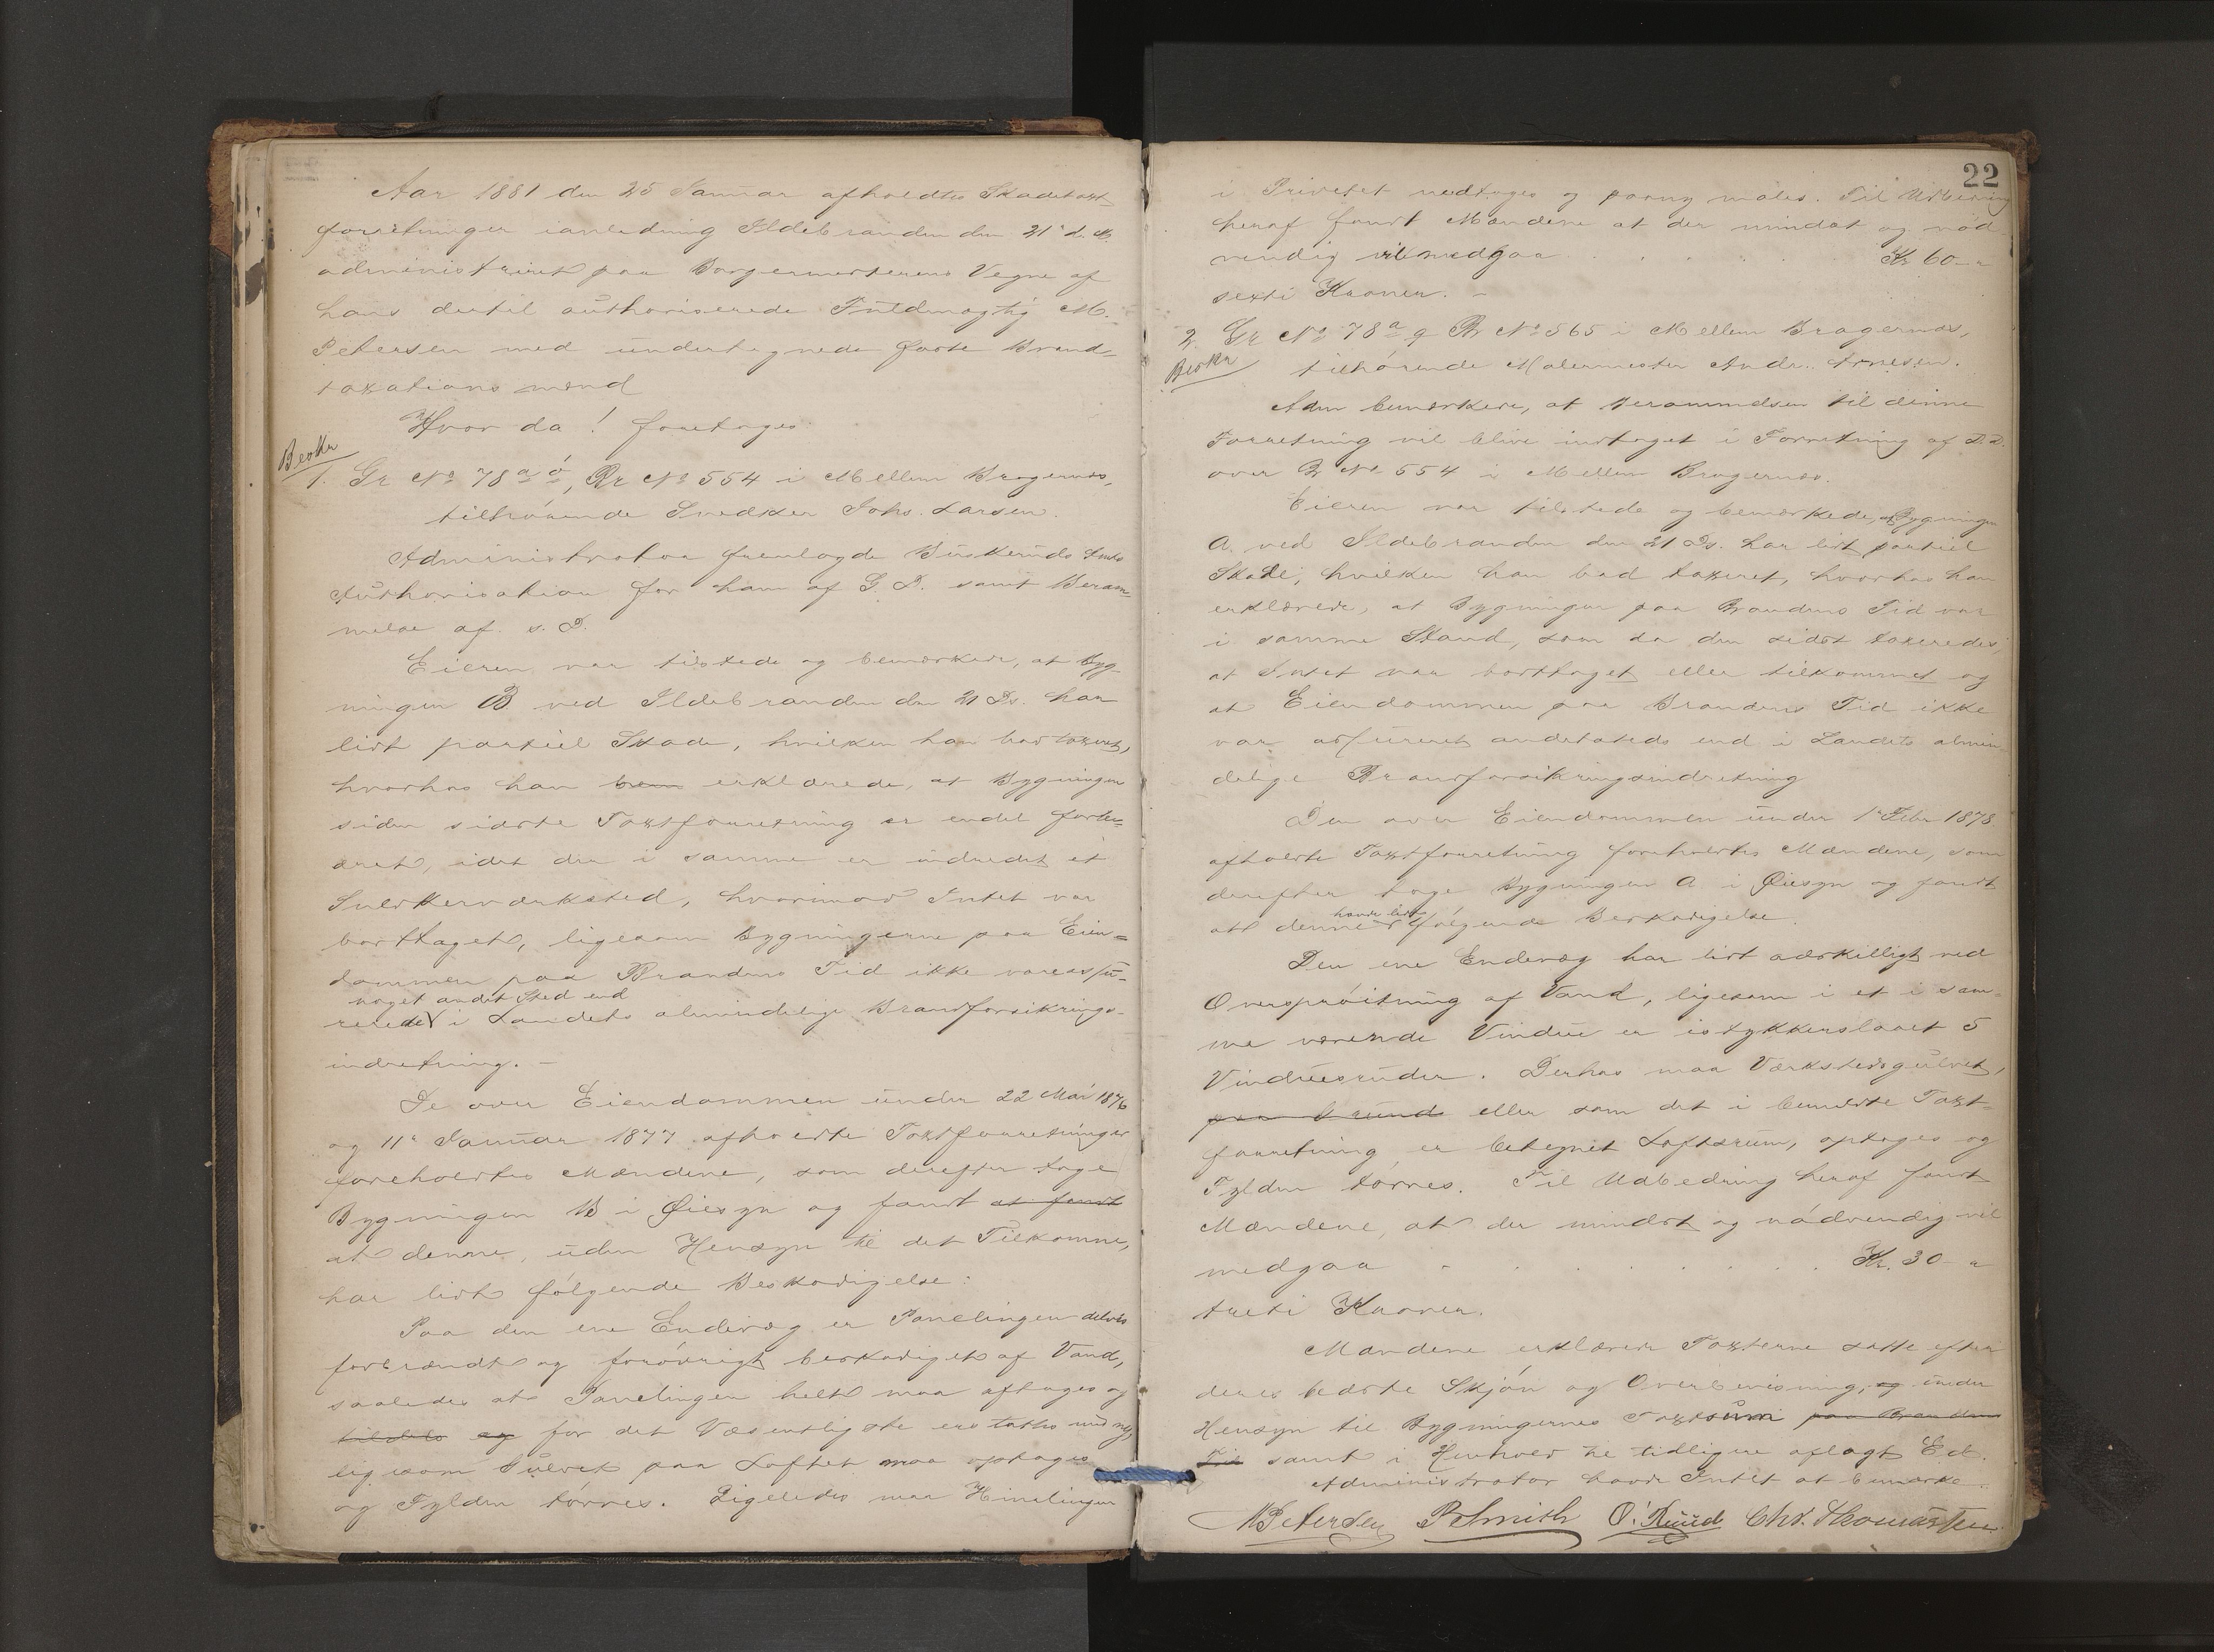 Aar 1881 den 25 Januar afholdtes Skadetaxt
forretninger ianledning Ildebranden den 21' d. M.
administreret paa Borgermesterens Vegne af
hans dertil authoriserede Fuldmægtig M.
Petersen med undertegnede faste Brand-
taxationsmænd
Hvor da! foretages:
Beskr
1. Gr No 78 a ó, Br No 554 i Mellem Bragernæs,
tilhörende Snedker Johs. Larsen.
Administrator fremlagde Buskeruds Amts
Authorisation for ham af G. D. samt Beram-
melse af s. D.
Eieren var tilstede og bemærkede, at Byg-
ningen B ved Ildebranden den 21 Ds. har
lidt partiel Skade, hvilken han bad taxeret,
hvorhos han bem erklærede, at Bygningen
siden sidste Taxtforretning er endel forbe-
dret, idet der i samme er indredet et
Snedkerværksted, hvorimod Intet var
borttaget, ligesom Bygningerne paa Eien-
dommen paa Brandens Tid ikke vare assu-
noget andet Sted end
rerede i Landets almindelige Brandforsikrings-
indretning. -
De over Eiendommen under 22 Mai 1876
og 11' Januar 1877 afholdte Taxtforretninger
foreholdtes Mændene, som derefter toge
Bygningen B i Øiesyn og fandt at fandt
at denne, uden Hensyn til det Tilkomne,
har lidt fölgende Beskadigelse:
Paa den ene Endevæg er Panelingen delvis
forbrændt og forövrigt beskadiget af Vand,
saaledes at Panelingen helt maa aftages og
tildels og for det Væsentligste erstattes med ny,
ligesom Gulvet paa Loftet maa optages
og Fylden törres. Ligeledes maa Himelingen
22
i Privetet nedtages og paany males. Til Udbedring
heraf fandt Mændene at der mindst og nöd-
vendig vil medgaa . . . . . Kr 60 - "
sexti Kroner. -
2. Gr No 78 a q Br No 565 i Mellem Bragernæs,
Beskr
tilhörende Malermester Andr. Arnesen.
Adm bemærkede, at Berammelsen til denne
Forretning vil blive indtaget i Forretning af D. D.
over Br No 554 i Mellem Bragernæs.
Eieren var tilstede og bemærkede, at Bygningen
A. ved Ildebranden den 21 Ds. har lidt partiel
Skade, hvilken han bad taxeret, hvorhos han
erklærede, at Bygningen paa Brandens Tid var
i samme Stand, som da den sidst taxeredes,
at Intet var borttaget eller tilkommet og
at Eiendommen paa Brandens Tid ikke
var assureret andetsteds end i Landets almin-
delige Brandforsikringsindretning
Den over Eiendommen under 1' Febr 1878
afholdte Taxtforretning foreholdtes Mændene, som
derefter toge Bygningen A i Øiesyn og fandt
havde lidt
at denne fölgende Beskadigelse.
Den ene Endevæg har lidt adskilligt ved
Overspröitning af Vand, ligesom i et i sam-
me værende Vindue er istykkerslaaet 5
Vinduesruder. Derhos maa Værkstedsgulvet,
eller som det i bemeldte Taxt-
forretning er betegnet Loftsrum, optages og
Fylden törres. Til Udbedring heraf fandt
Mændene, at der mindst og nödvendig vil
medgaa - . . . . . . . Kr. 30 - "
treti Kroner.
Mændene erklærede Taxterne satte efter
deres bedste Skjön og Overbevisning, og under
Hensyn til Bygningernes Taxtsum paa Brandens
Tid samt i Henhold til tidligere aflagt Ed.
Administrator havde Intet at bemærke.
MPetersen PSmith O. Ruud Chr. Thomassen